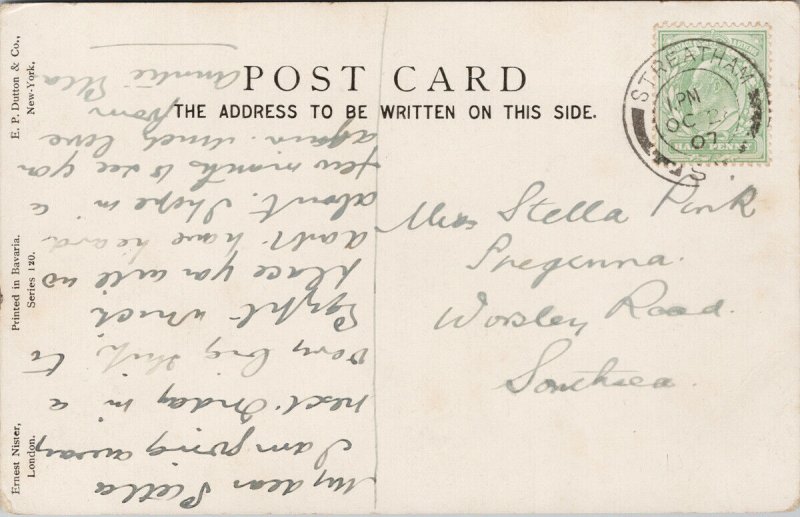 POST CARD
THE ADDRESS TO BE WRITTEN ON THIS SIDE.
STREATHAM
1 PM
OC 2
07
S
HALF PENNY
Miss Stella Pink
Worsley Road.
Southsea.
My dear Stella
I am going away
next Friday in a
very big ship to
Egypt which
place you will no
doubt have heard
about. I hope in a
few months to see you
again. Much love
from
Auntie Ella
Ernest Nister,
London.
Printed in Bavaria.
Series 120.
E. P. Dutton & Co.,
New-York.